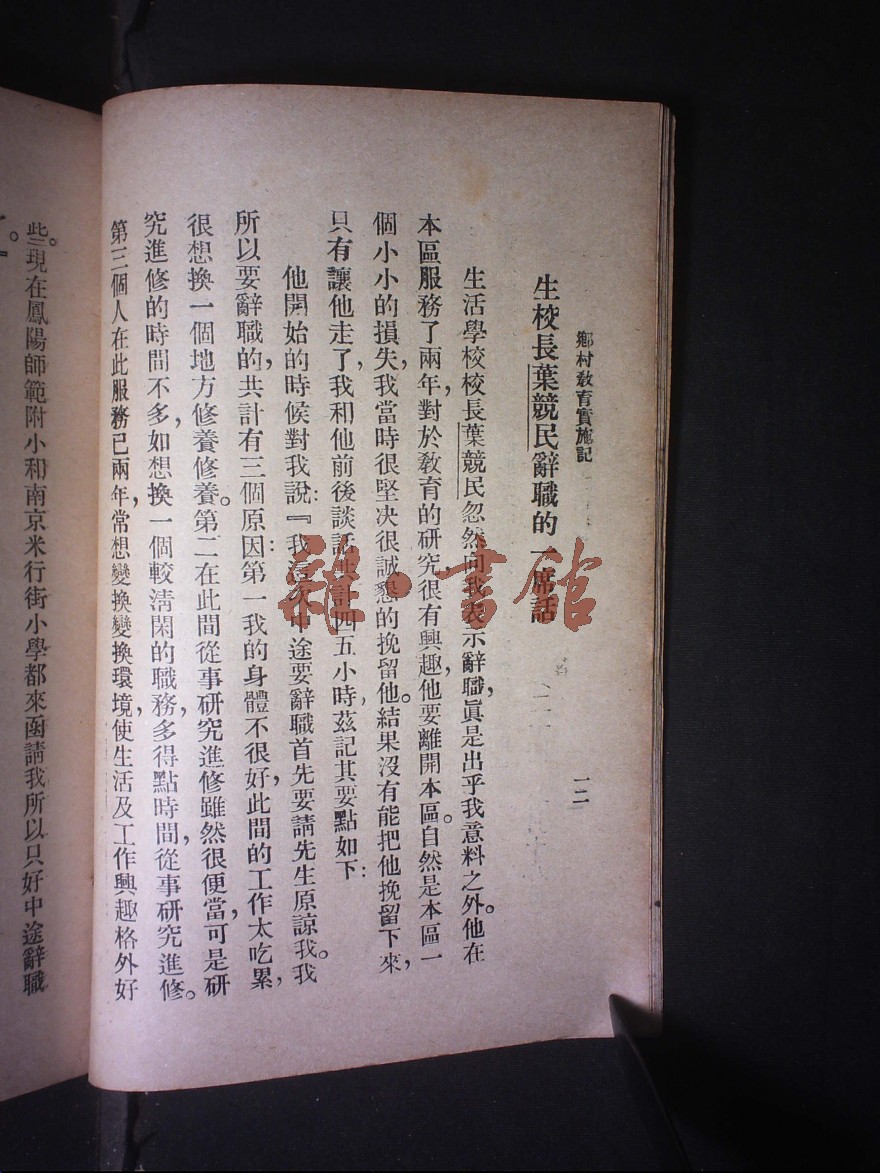 鄉村教育實施記
一二
生校長葉競民辭職的一席話
生活學校校長葉競民忽然向我表示辭職，眞是出乎我意料之外。他在
本區服務了兩年，對於教育的研究很有興趣，他要離開本區。自然是本區一
個小小的損失，我當時很堅决很誠懇的挽留他。結果沒有能把他挽留下來，
只有讓他走了，我和他前後談話共計四五小時，茲記其要點如下：
他開始的時候對我說：『我這次中途要辭職首先要請先生原諒我。我
所以要辭職的，共計有三個原因：第一我的身體不很好，此間的工作太吃累，
很想換一個地方修養修養。第二在此間從事研究進修雖然很便當，可是研
究進修的時間不多，如想換一個較淸閑的職務，多得點時間，從事研究進修。
第三個人在此服務已兩年，常想變換變換環境，使生活及工作興趣格外好
些。現在鳳陽師範附小和南京米行街小學都來函請我所以只好中途辭職
了。』
雜·書館